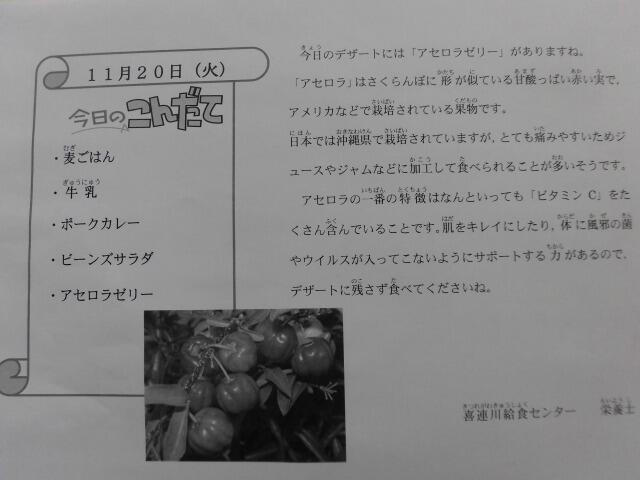 11月20日（火）
今日のこんだて
・麦ごはん
・牛乳
・ポークカレー
・ビーンズサラダ
・アセロラゼリー
今日のデザートには「アセロラゼリー」がありますね。
「アセロラ」はさくらんぼに形が似ている甘酸っぱい赤い実で，
アメリカなどで栽培されている果物です。
日本では沖縄県で栽培されていますが，とても痛みやすいためジ
ュースやジャムなどに加工して食べられることが多いそうです。
アセロラの一番の特徴はなんといっても「ビタミンC」をた
くさん含んでいることです。肌をキレイにしたり，体に風邪の菌
やウイルスが入ってこないようにサポートする力があるので，
デザートに残さず食べてくださいね。
喜連川給食センター　栄養士